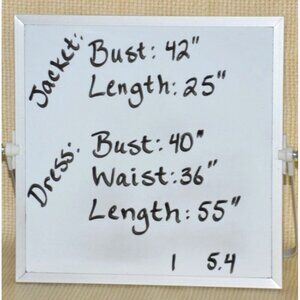 Jacket:
Bust: 42"
Length: 25"
Dress:
Bust: 40"
Waist: 36"
Length: 55"
1 5.4